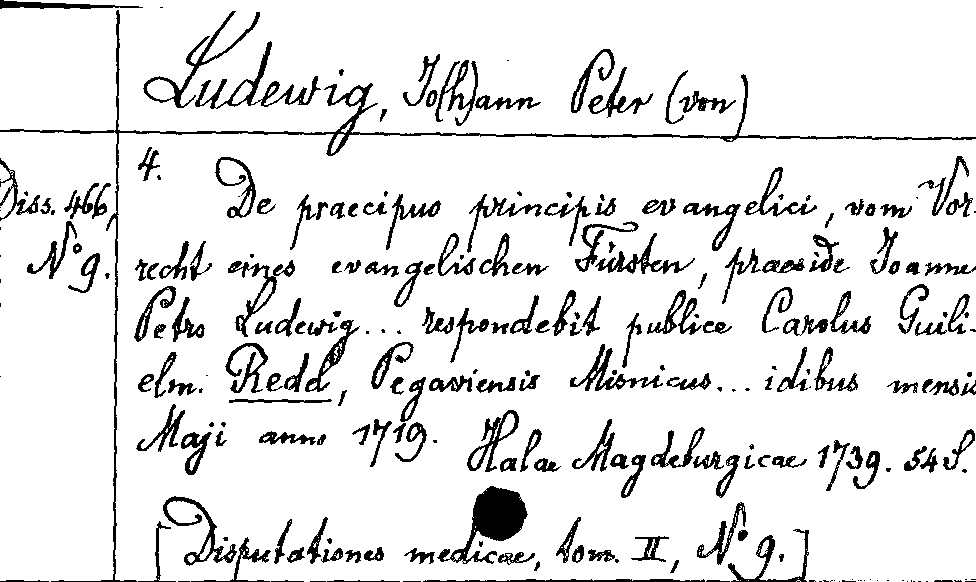 Ludewig, Jo(h)ann Peter (von)
4.
Diss. 466,
N° 9.
De praecipuo principis evangelici, vom Vor-
recht eines evangelischen Fürsten, praeside Joanne
Petro Ludewig... respondebit publice Carolus Guili-
elm. Redel, Pegaviensis Misnicus... idibus mensis
Maji anno 1719.
Halae Magdeburgicae 1739. 54 S.
[Disputationes medicae, tom. II, N° 9.]